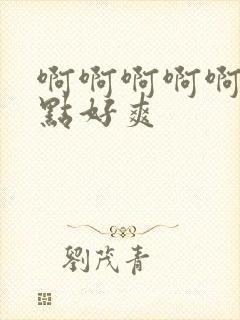 啊啊啊啊啊
點好爽
劉茂青